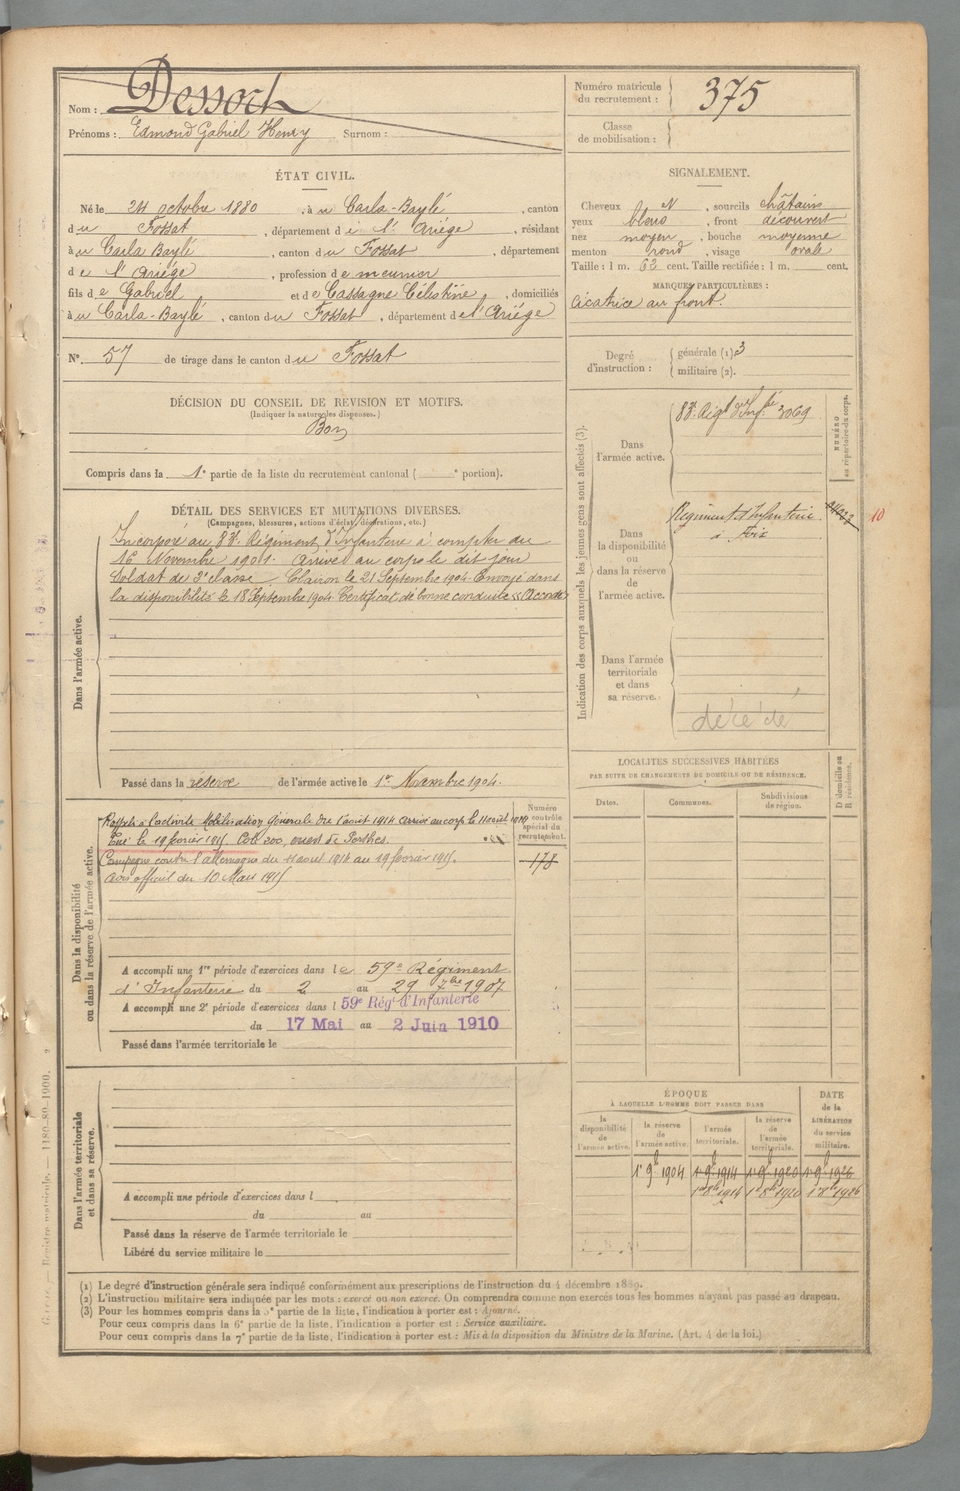 Nom : Dessoch
Prénoms : Edmond Gabriel Henry Surnom :
Numéro matricule du recrutement : 375
Classe de mobilisation :
ÉTAT CIVIL.
Né le 24 octobre 1880, à u Carla-Baylé, canton
du Fossat, département de l'Ariége, résidant
à u Carla Baylé, canton du Fossat, département
de l'Ariége, profession de meunier
fils de Gabriel et de Cassagne Célestine, domiciliés
à u Carla-Baylé, canton du Fossat, département de l'Ariége
N° 57 de tirage dans le canton du Fossat
SIGNALEMENT.
Cheveux N, sourcils châtains
yeux bleus, front découvert
nez moyen, bouche moyenne
menton rond, visage ovale
Taille : 1 m. 62 cent. Taille rectifiée : 1 m. cent.
MARQUES PARTICULIÈRES :
Cicatrice au front.
Degré d'instruction : générale (1) 3
militaire (2).
DÉCISION DU CONSEIL DE REVISION ET MOTIFS.
(Indiquer la nature des dispenses.)
Bon
Compris dans la 1e partie de la liste du recrutement cantonal ( e portion).
DÉTAIL DES SERVICES ET MUTATIONS DIVERSES.
(Campagnes, blessures, actions d'éclat, décorations, etc.)
Dans l'armée active.
Incorporé au 83e Régiment d'Infanterie à compter du
16 Novembre 1901. Arrivé au corps le dit jour
Soldat de 2e classe. Clairon le 21 Septembre 1904. Envoyé dans
la disponibilité le 18 Septembre 1904. Certificat de bonne conduite « Accordé »
Passé dans la réserve de l'armée active le 1er Novembre 1904.
Indication des corps auxquels les jeunes gens sont affectés (3).
NUMÉRO au répertoire du corps.
Dans l'armée active.
83e Régt d'Infie 3069
Dans la disponibilité ou dans la réserve de l'armée active.
Régiment d'Infanterie
à Foix
10
Dans l'armée territoriale et dans sa réserve.
décédé
Dans la disponibilité ou dans la réserve de l'armée active.
Numéro contrôle spécial du recrutement.
178
Rappelé à l'activité Mobilisation Générale du 1 août 1914 arrivé au corps le 11 août 1914
Tué le 19 février 1915. Cote 200, ouest de Perthes.
Campagne contre l'Allemagne du 11 août 1914 au 19 février 1915.
Avis officiel du 10 Mars 1915
A accompli une 1re période d'exercices dans le 59e Régiment
d'Infanterie du 2 au 29 7bre 1907
A accompli une 2e période d'exercices dans l 59e Régt d'Infanterie
du 17 Mai au 2 Juin 1910
Passé dans l'armée territoriale le
LOCALITÉS SUCCESSIVES HABITÉES
PAR SUITE DE CHANGEMENTS DE DOMICILE OU DE RÉSIDENCE.
Dates. Communes. Subdivisions de région.
D domicile ou R résidence.
Dans l'armée territoriale et dans sa réserve.
A accompli une période d'exercices dans l
du au
Passé dans la réserve de l'armée territoriale le
Libéré du service militaire le
ÉPOQUE
À LAQUELLE L'HOMME DOIT PASSER DANS
la disponibilité de l'armée active.
la réserve de l'armée active.
l'armée territoriale.
la réserve de l'armée territoriale.
DATE de la LIBÉRATION du service militaire.
1er 9b 1904 1er 9b 1914 1er 9b 1920 1er 9b 1926
1er 8b 1914 1er 8b 1920 1er 8b 1926
(1) Le degré d'instruction générale sera indiqué conformément aux prescriptions de l'instruction du 4 décembre 1889.
(2) L'instruction militaire sera indiquée par les mots : exercé ou non exercé. On comprendra comme non exercés tous les hommes n'ayant pas passé au drapeau.
(3) Pour les hommes compris dans la 5e partie de la liste, l'indication à porter est : Ajourné.
Pour ceux compris dans la 6e partie de la liste, l'indication à porter est : Service auxiliaire.
Pour ceux compris dans la 7e partie de la liste, l'indication à porter est : Mis à la disposition du Ministre de la Marine. (Art. 4 de la loi.)
Registre matricule. — 1180-89-1900.